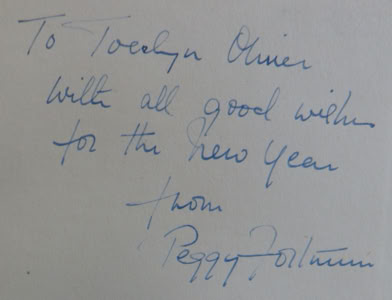 To Jocelyn Oliver
with all good wishes
for the New Year
from
Peggy Fortnum